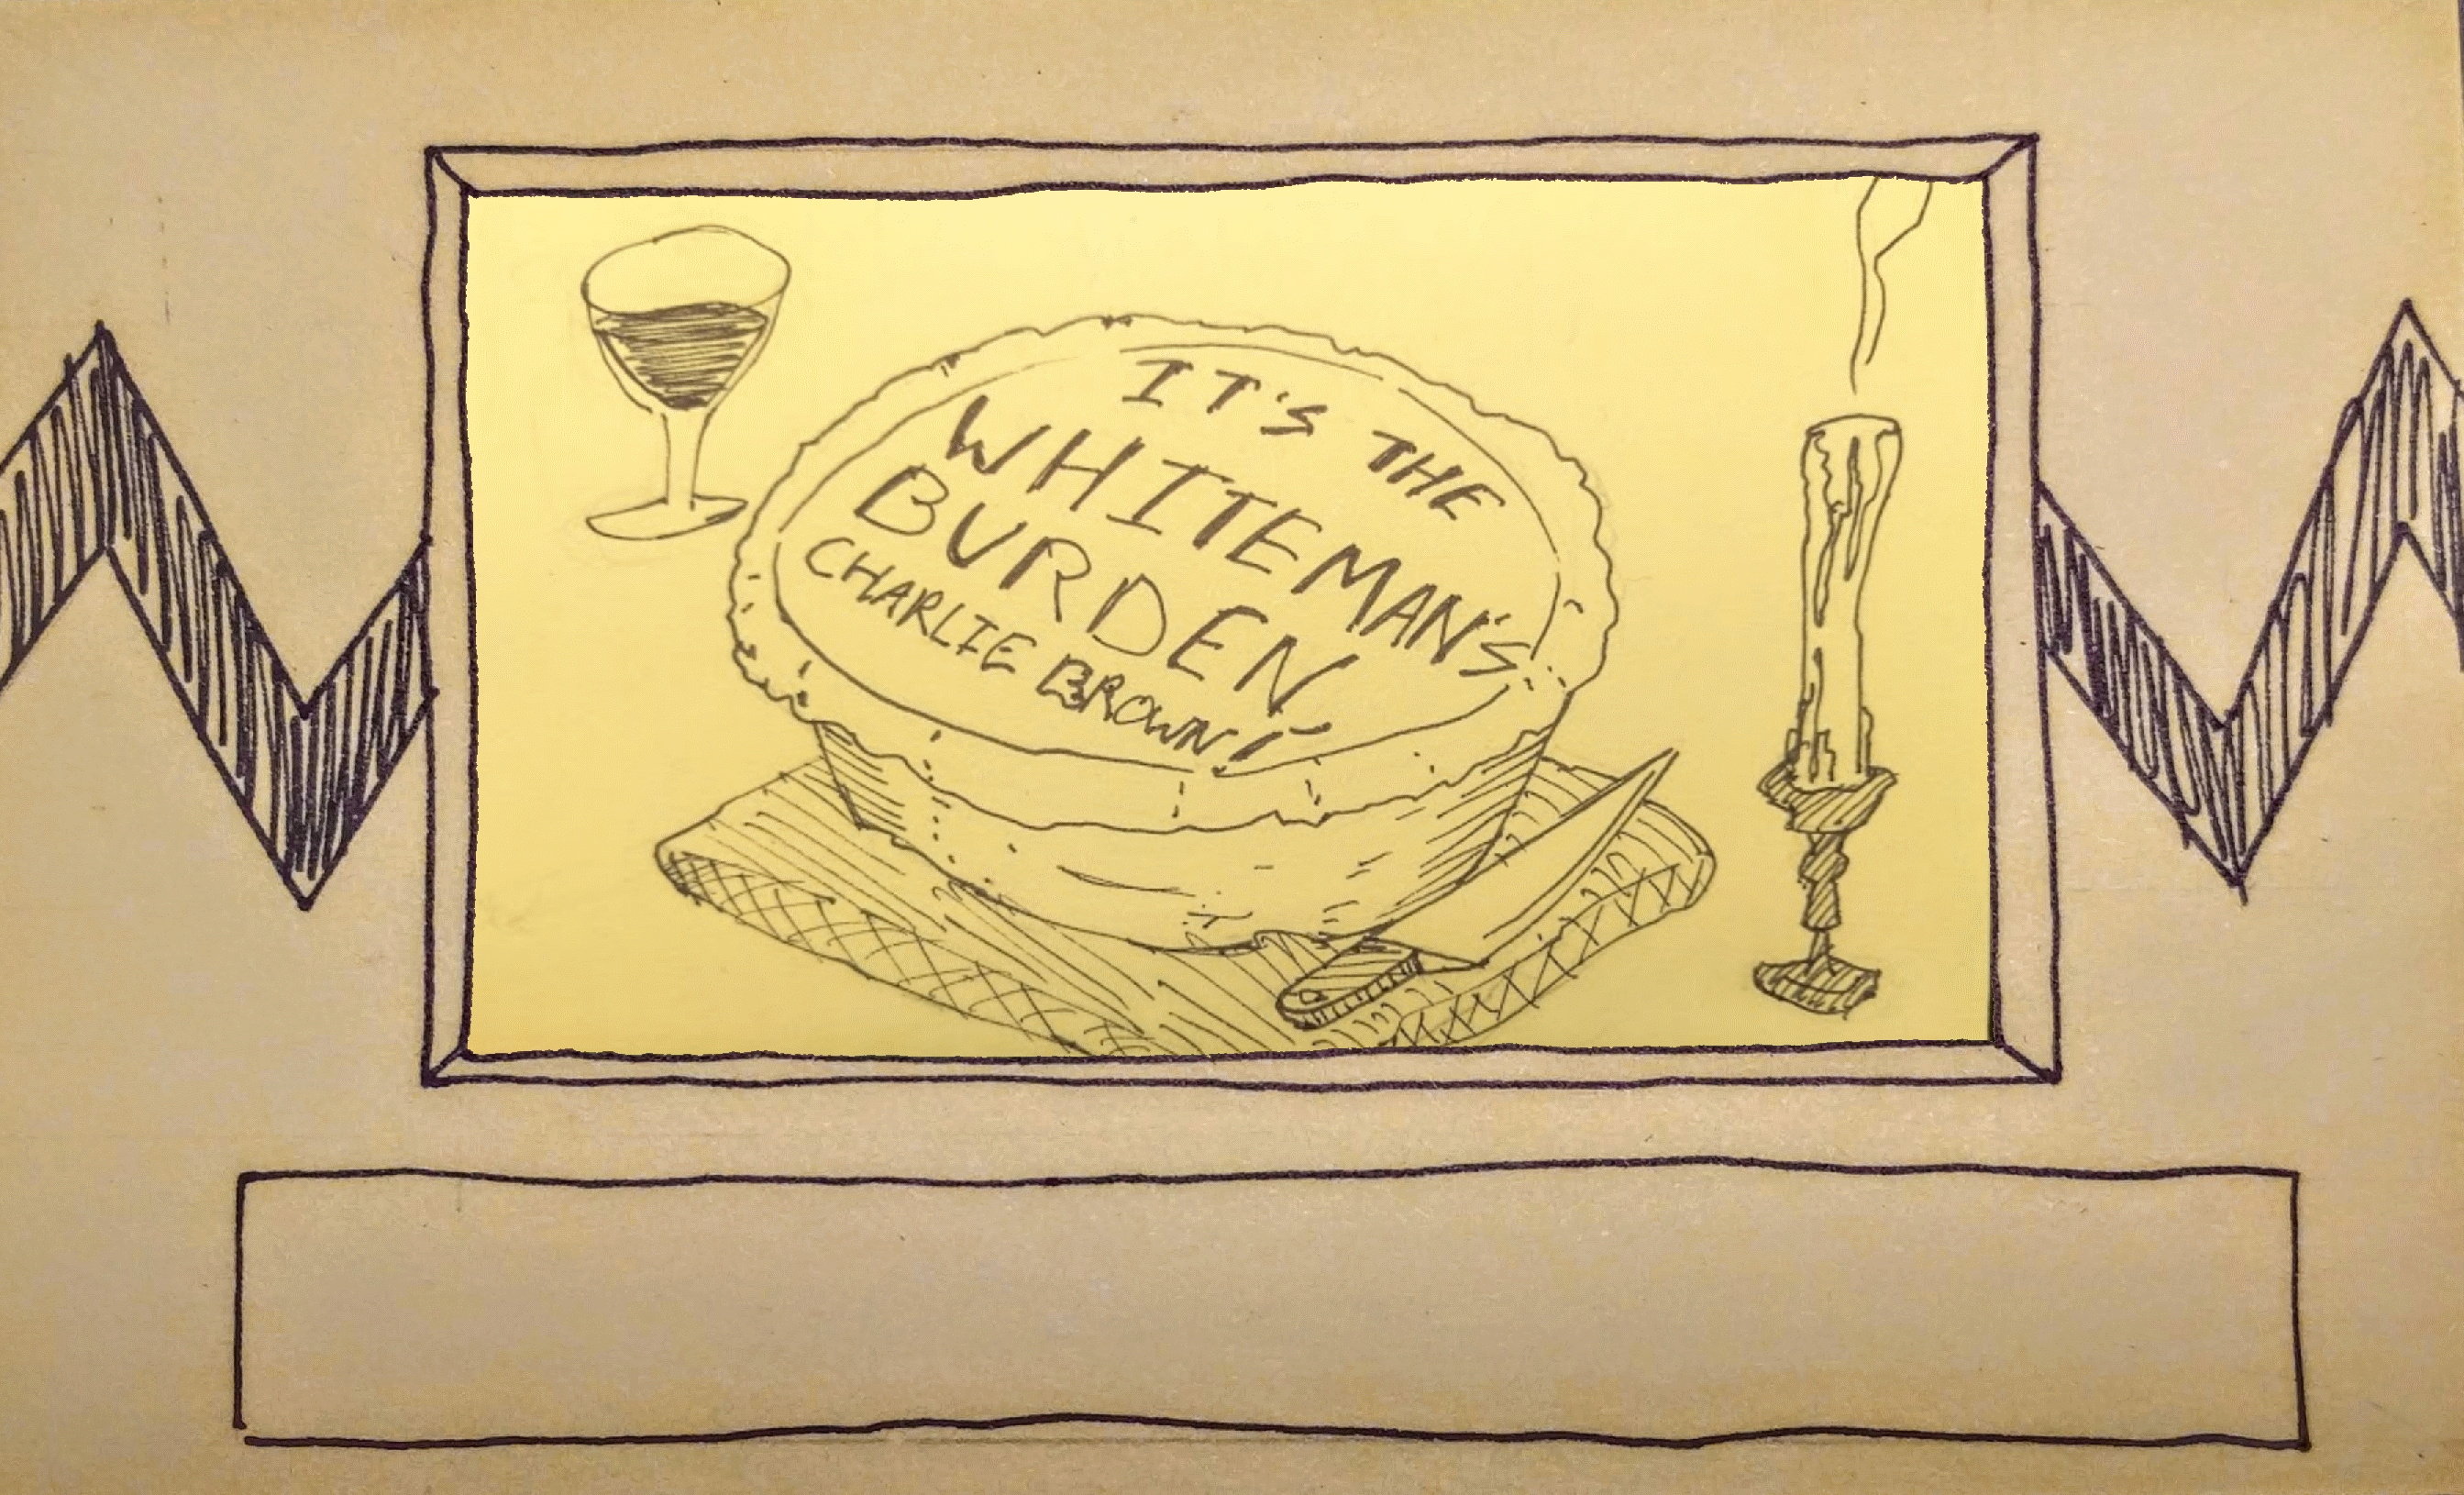 IT'S THE
WHITEMAN'S
BURDEN
CHARLIE BROWN!